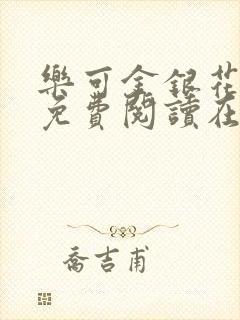 樂可金銀花
免費閱讀在
喬吉甫